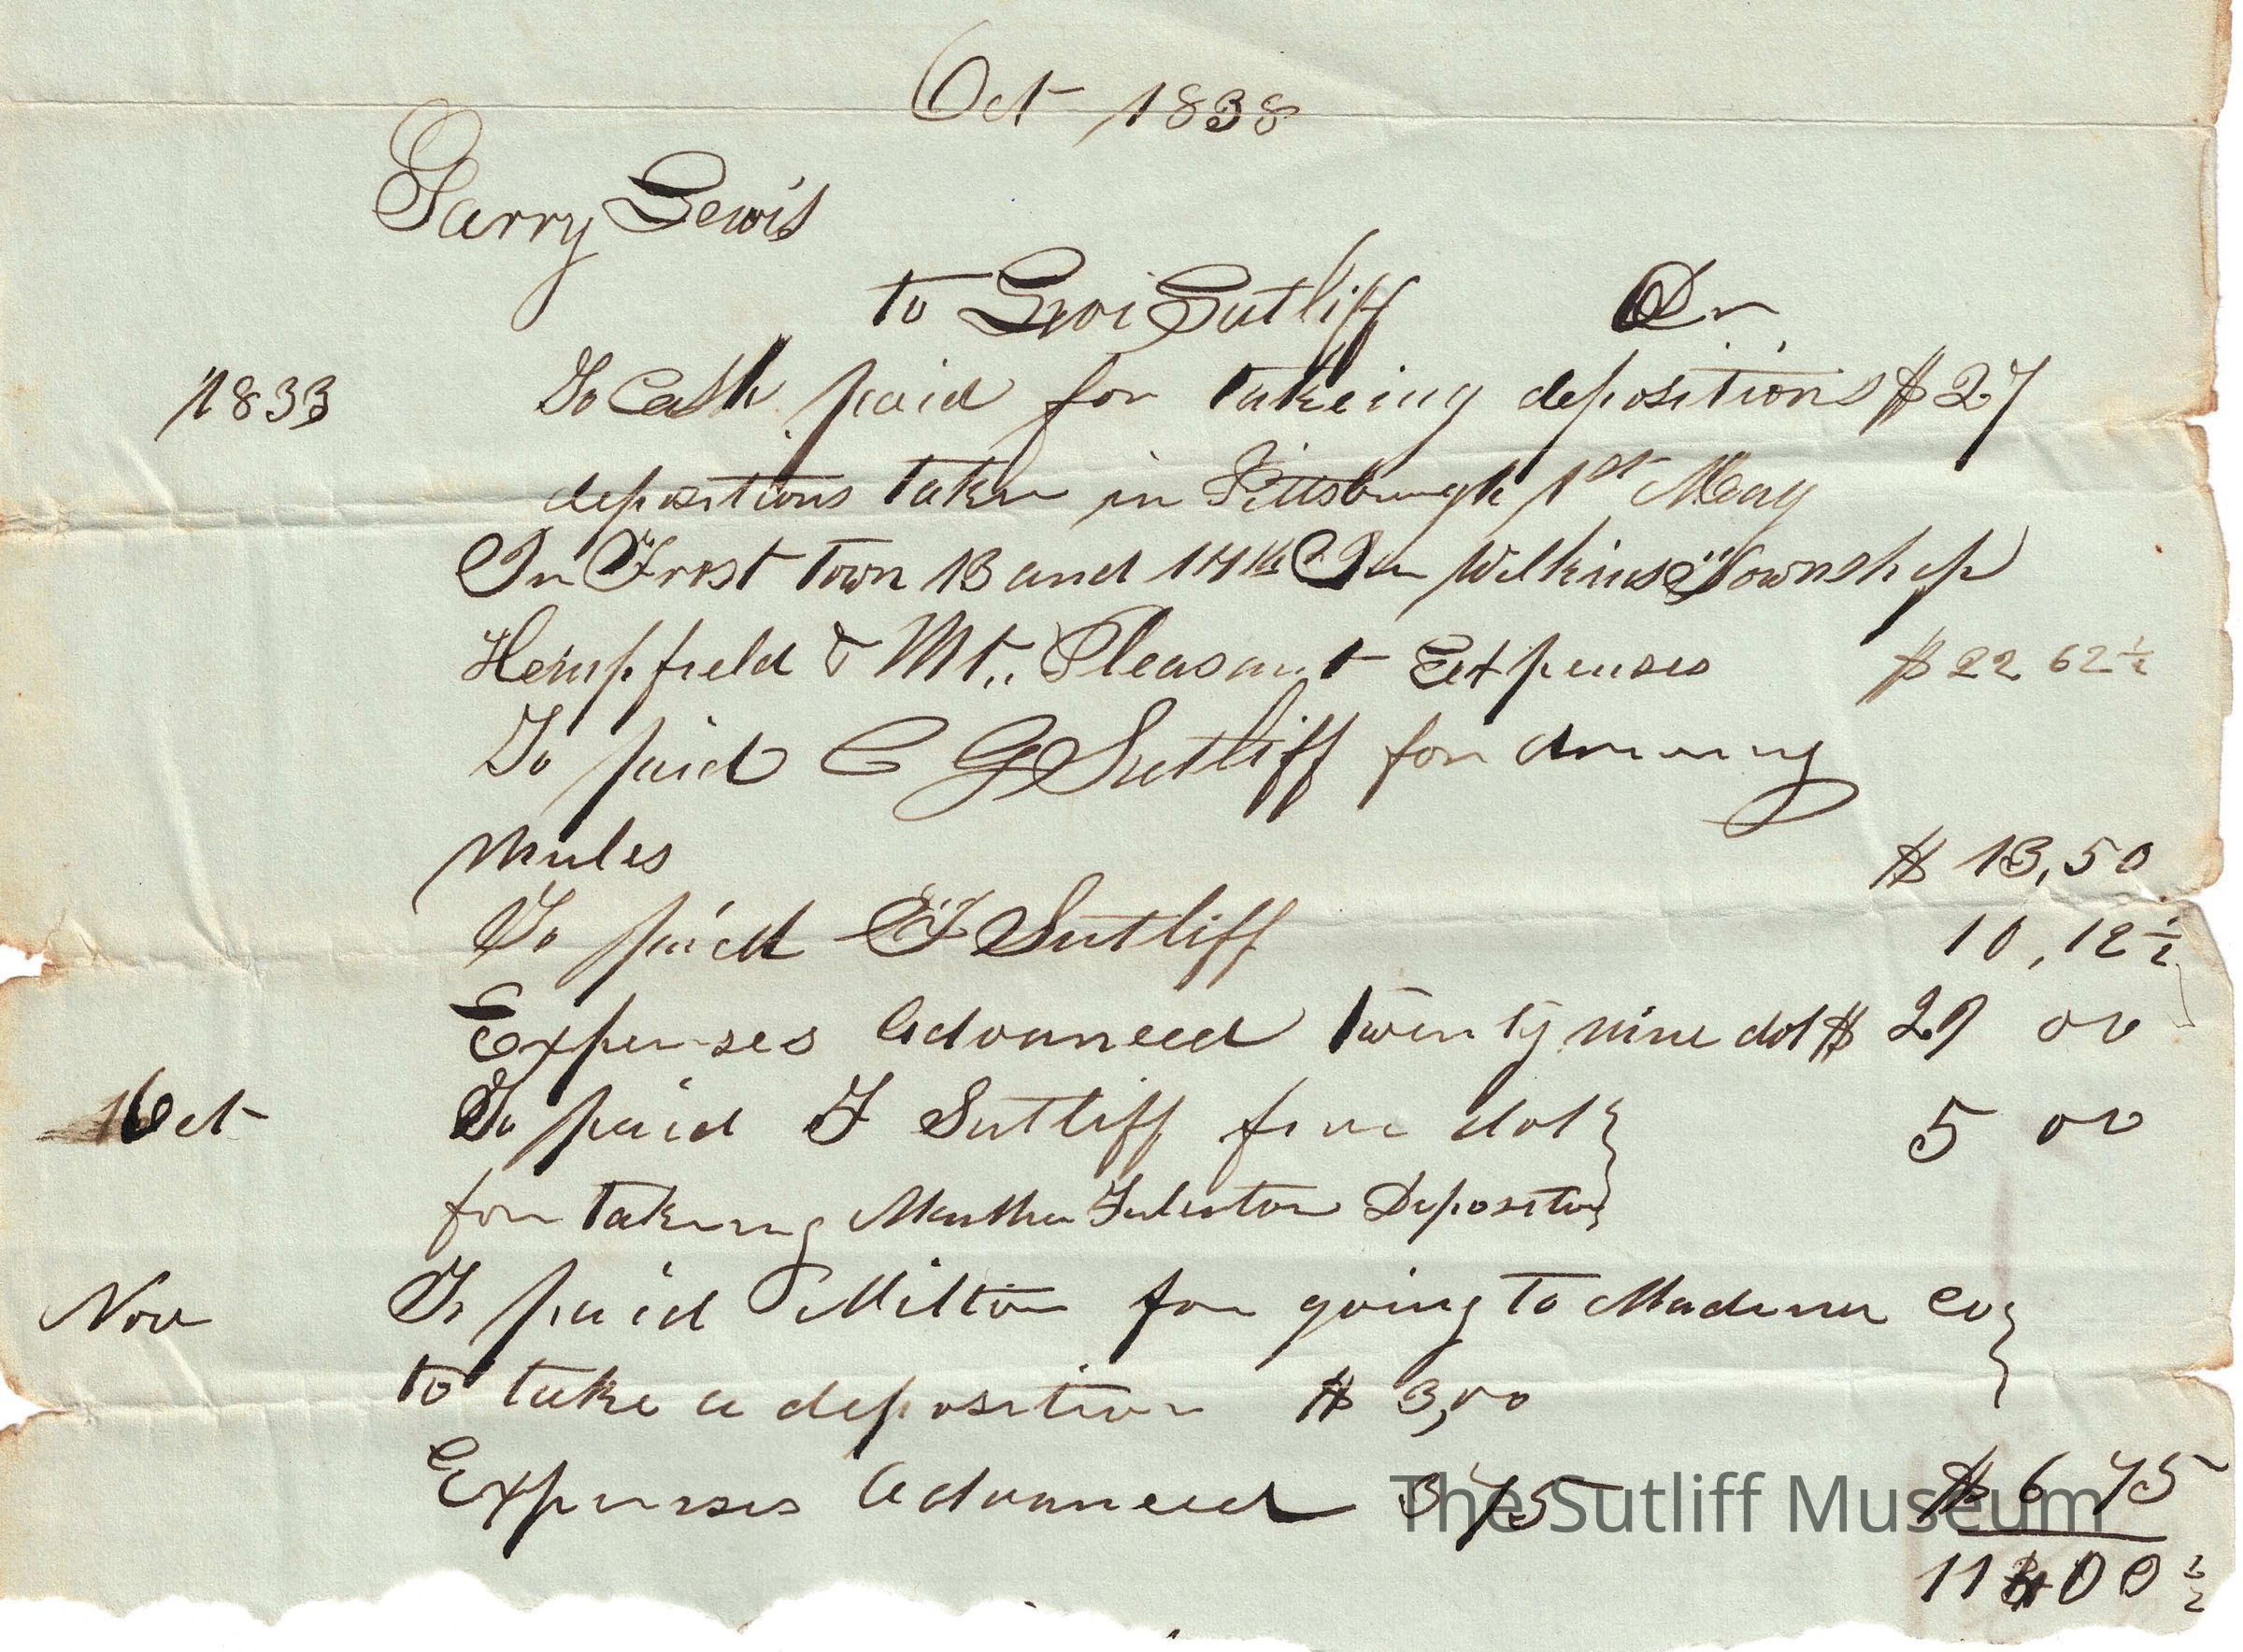 Oct 1838
Garry Lewis
to Levi Sutliff Dr
1833 To Cash paid for takeing depositions $27
depositions taken in Pittsburgh 1st May
In Frost Town 13 and 14th In Wilkins Township
Hempfield & Mt,, Pleasant Expenses $22 62½
To paid C G Sutliff for drawing
Mules $ 13,50
To paid F Sutliff 10,12½
Expenses Advanced twenty nine dol $ 29 00
Oct To paid F Sutliff five dol 5 00
for taking Martha Deposition
Nov To paid Milton for going to Madina Co
to take a deposition $ 3,00
Expenses Advanced 3 75 $ 6 75
The Sutliff Museum
½